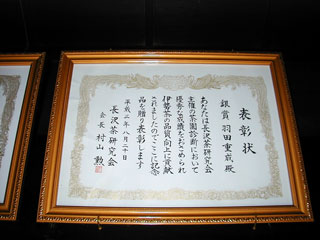 表彰状
銀賞 羽田重哉殿
あなたは長沢茶研究会
主催の茶園診断において
優秀な成績をおさめられ
伊勢茶の品質向上に貢献
されましたのでここに記念
品を贈り表彰します
平成二年八月二十日
長沢茶研究会
会長 村山 勲